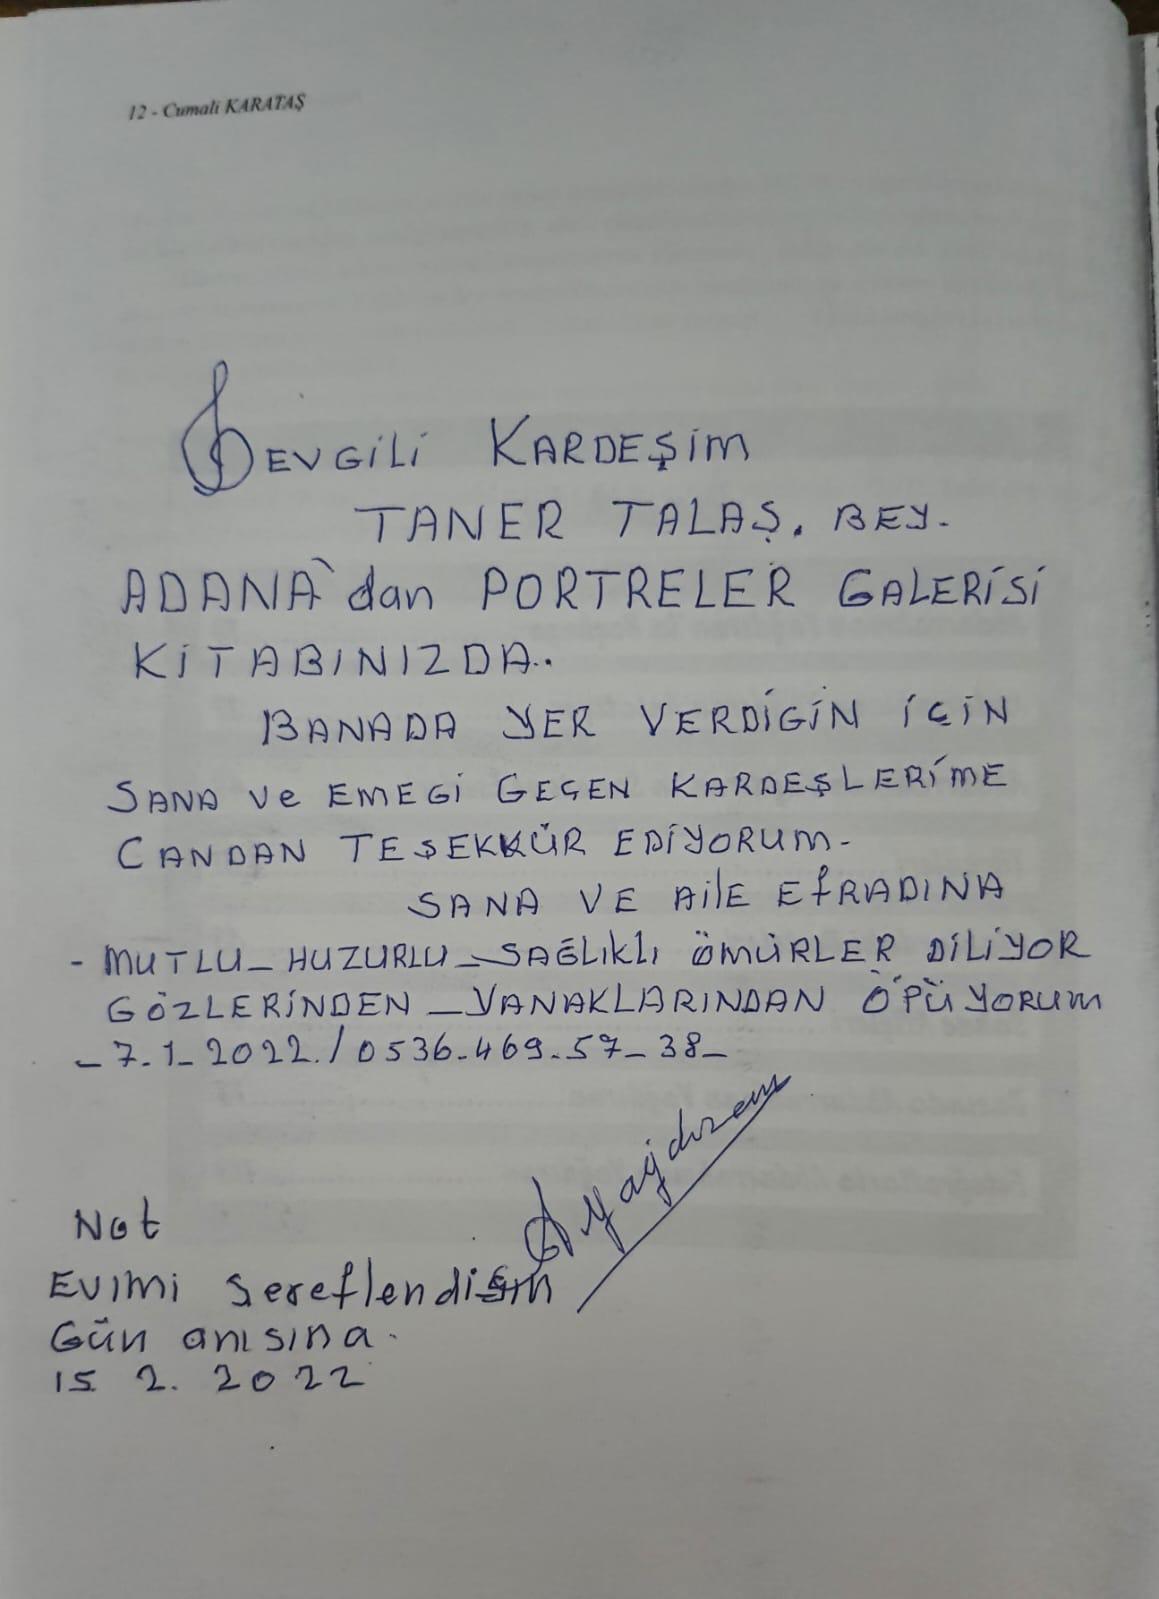 12 - Cumali KARATAŞ
SEVGİLİ KARDEŞİM
TANER TALAŞ. BEY.
ADANA`dan PORTRELER GALERİSİ
KİTABINIZDA..
BANADA YER VERDİGİN İÇİN
SANA Ve EMEGİ GEÇEN KARDEŞLERİME
CANDAN TEŞEKKÜR EDİYORUM-
SANA VE AİLE EfRADINA
- MUTLU_HUZURLU_SAĞLIKLI ÖMÜRLER DİLİYOR
GÖZLERİNDEN _YANAKLARINDAN ÖPÜYORUM
_7-1_2022./0536-469-57_38_
Not
EVİMİ Şereflendiğin
Gün anısına.
15 2. 2022